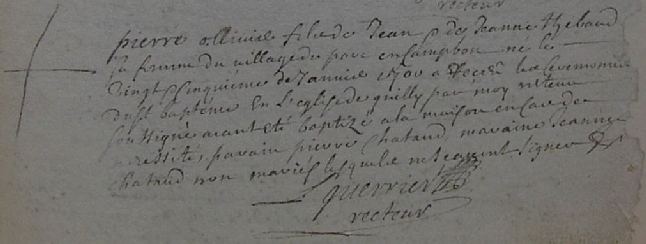 recteur
pierre ollivier fils de Jean & de Jeanne thebaud
sa femme du village du parc en Campbon né le
vingt & cinquieme de Janvier 1700 a Receu les Ceremonies
du st baptéme En l'eglise de quilly par moy recteur
soussigné aiant eté baptizé a la maison en Cas de
necessité, parain pierre Chataud maraine Jeanne
Chataud non mariés lesquels ne sçavent signer &
Guerrier
recteur